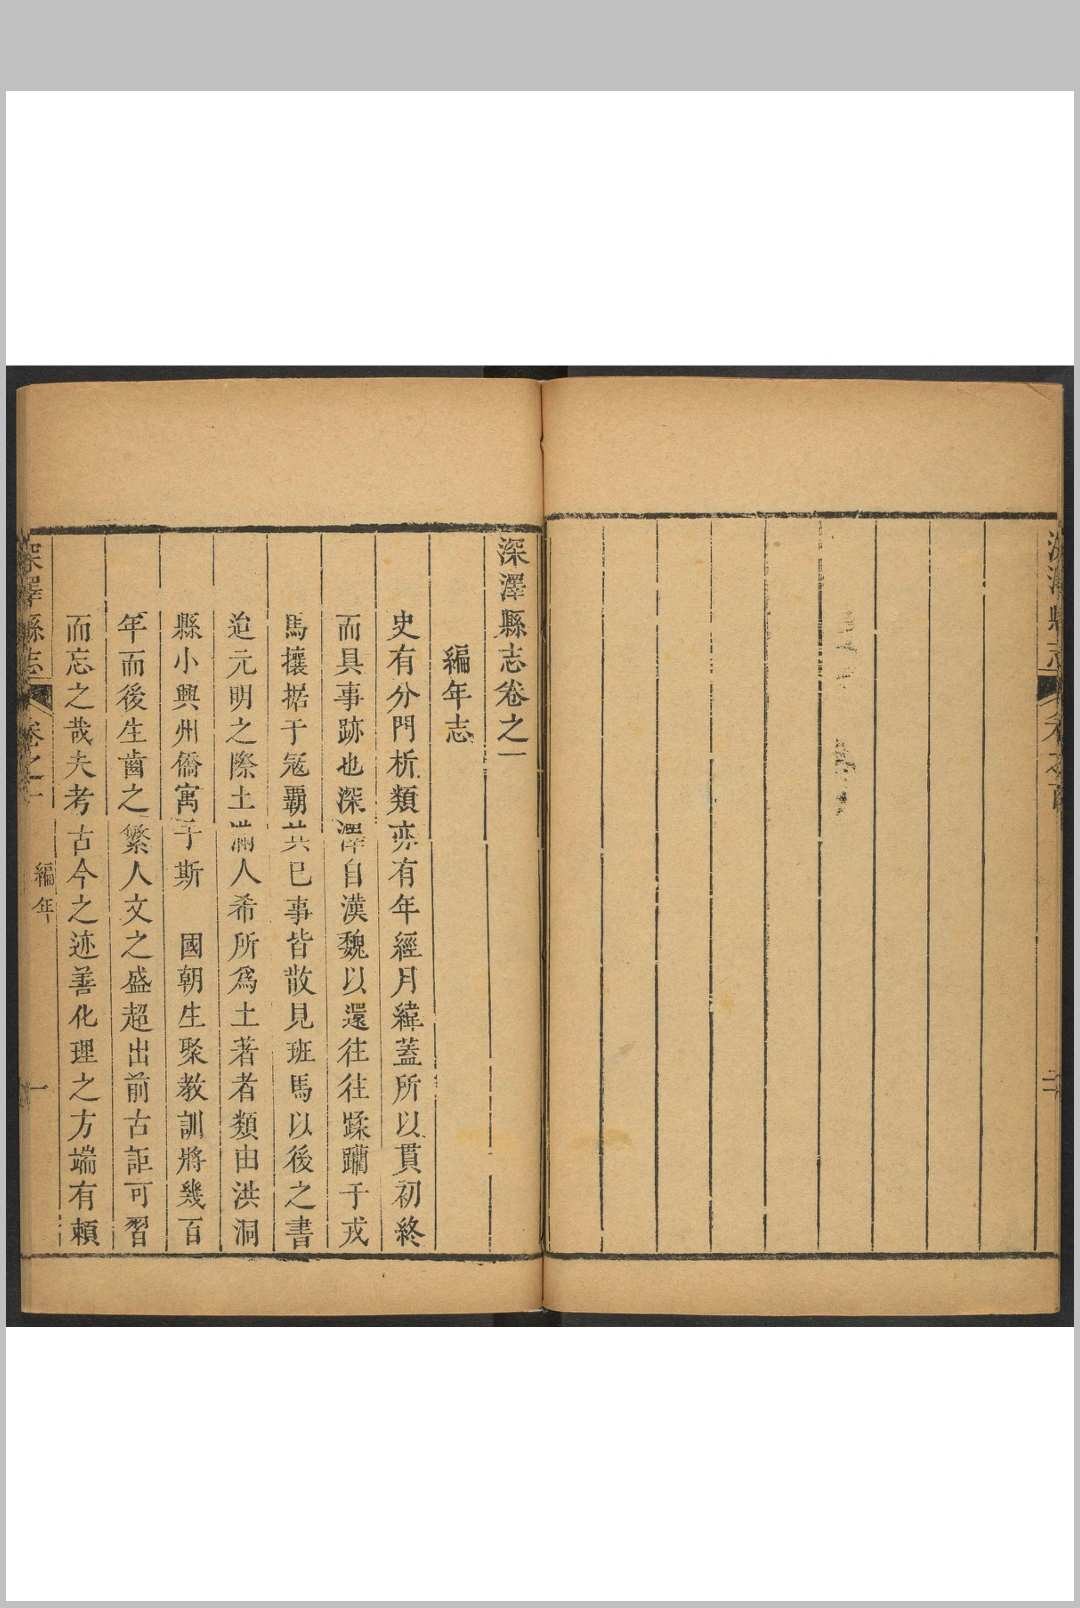 深澤縣志卷之一
編年志
史有分門析類亦有年經月緯蓋所以貫初終
而具事跡也深澤自漢魏以還往往蹂躪于戎
馬攘據于冦覇其巳事皆散見班馬以後之書
迨元明之際土滿人希所爲土著者類由洪洞
縣小興州僑寓于斯 國朝生聚教訓將幾百
年而後生齒之繁人文之盛超出前古詎可習
而忘之哉夫考古今之迹善化理之方端有賴
深澤縣志 卷之一 編年 一